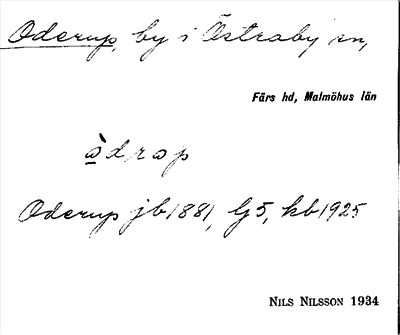 Oderup, by i Östraby sn,
Färs hd, Malmöhus län
àdrap
Oderup jb 1881, G5, kb 1925
NILS NILSSON 1934